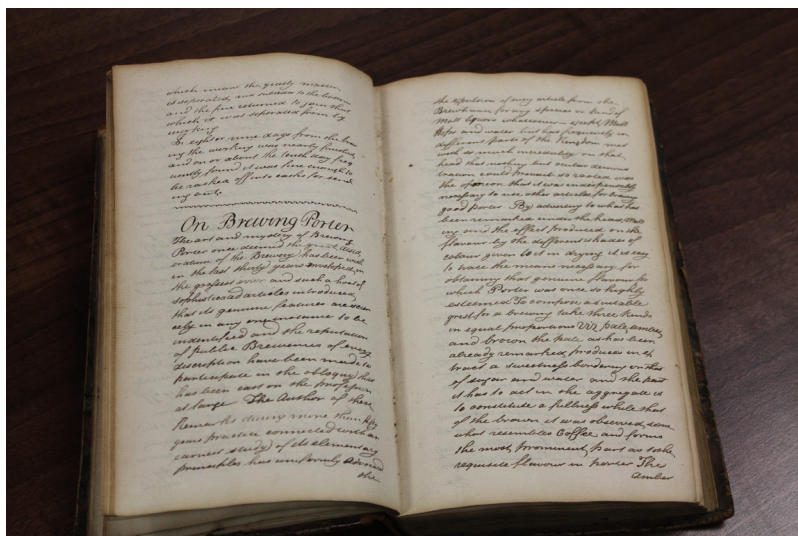 which means the yeasty matter
is separated, and subsides to the bottom
and the fine returned to join that
which it was separated from by
working
In eight or nine days from the brew
ing the working was nearly finished,
and on or about the tenth day freq
uently found it was fine enough to
be racked off into casks for send
ing out.
On Brewing Porter
The art and mystery of Brewing
Porter once deemed the great deside
ratum of the Brewery has been with
in the last thirty years enveloped in
the grossest error and such a host of
sophisticated articles introduced,
that its genuine features are scar
cely in any one instance to be
indentified and the reputation
of public Breweries of every
description have been made to
participate in the obloquy that
has been cast on the profession
at large The Author of these
Remarks during more than fifty
years practice connected with an
earnest study of its elementary
principles has uniformly advised
the
the expulsion of every article from the
Brewhouse for any species or kind of
Malt liquor whatsoever – except Malt
Hops and water but has frequently in
different parts of the Kingdom met
with so much incredulity on that
head that nothing but ocular demons
tration could prevail so rooted was
the opinion that it was indispensibly
necessary to use other articles for brewing
good porter By adverting to what has
been remarked under the head, Malt
ing and the effect produced on the
flavour by the different shades of
colour given to it in drying it is easy
to trace the means necessary for
obtaining that genuine flavour for
which Porter was once so highly
esteemed To compose a suitable
grist for a brewing take three kinds
in equal proportions viz pale, amber,
and brown the pale as has been
already remarked, produces in ex
tract a sweetness bordering on that
of sugar and water and the part
it has to act in the aggregate is
to constitute a fullness while that
of the brown it was observed, some
what resembles Coffee and forms
the most prominent part as to the
requisite flavour in porter The
amber